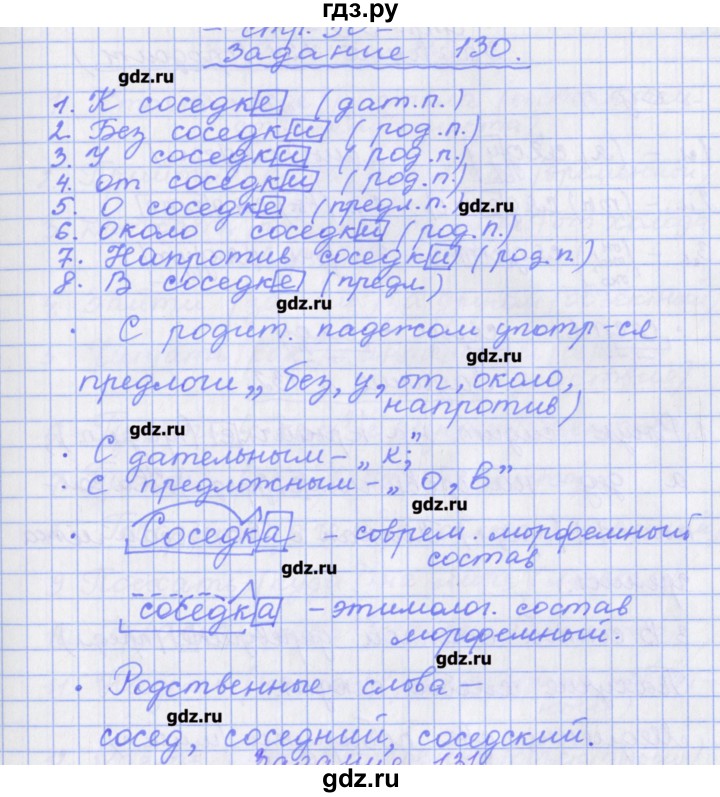 гдз.ру
- стр. 50 -
Задание 130.
gdz.ru
1. К соседке (дат.п.)
2. Без соседки (род.п.)
3. У соседки (род.п.)
4. от соседки (род.п.)
5. О соседке (предл.п.) gdz.ru
6. Около соседки (род.п.)
7. Напротив соседки (род.п.)
8. В соседке (предл.)
gdz.ru
· С родит. падежом употр-ся
gdz.ru
предлоги „ без, у, от, около,
напротив)
gdz.ru
· С дательным - „ к;"
· С предложным - „ О, В"
gdz.ru
· Соседка - соврем. морфемный
состав
gdz.ru
соседка - этимолог. состав
морфемный.
gdz.ru
· Родственные слова -
gdz.ru
сосед, соседний, соседский.
Задание 131
gdz.ru